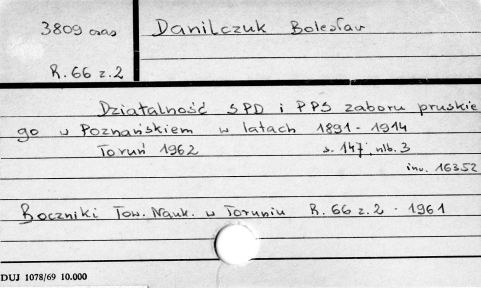 3809 czas
Danilczuk Bolesław
R. 66 z. 2
Działalność SPD i PPS zaboru pruskie
go w Poznańskiem w latach 1891-1914
Toruń 1962 s. 147, nlb. 3
inw. 16352
Roczniki Tow. Nauk. w Toruniu R. 66 z. 2 - 1961
DUJ 1078/69 10.000